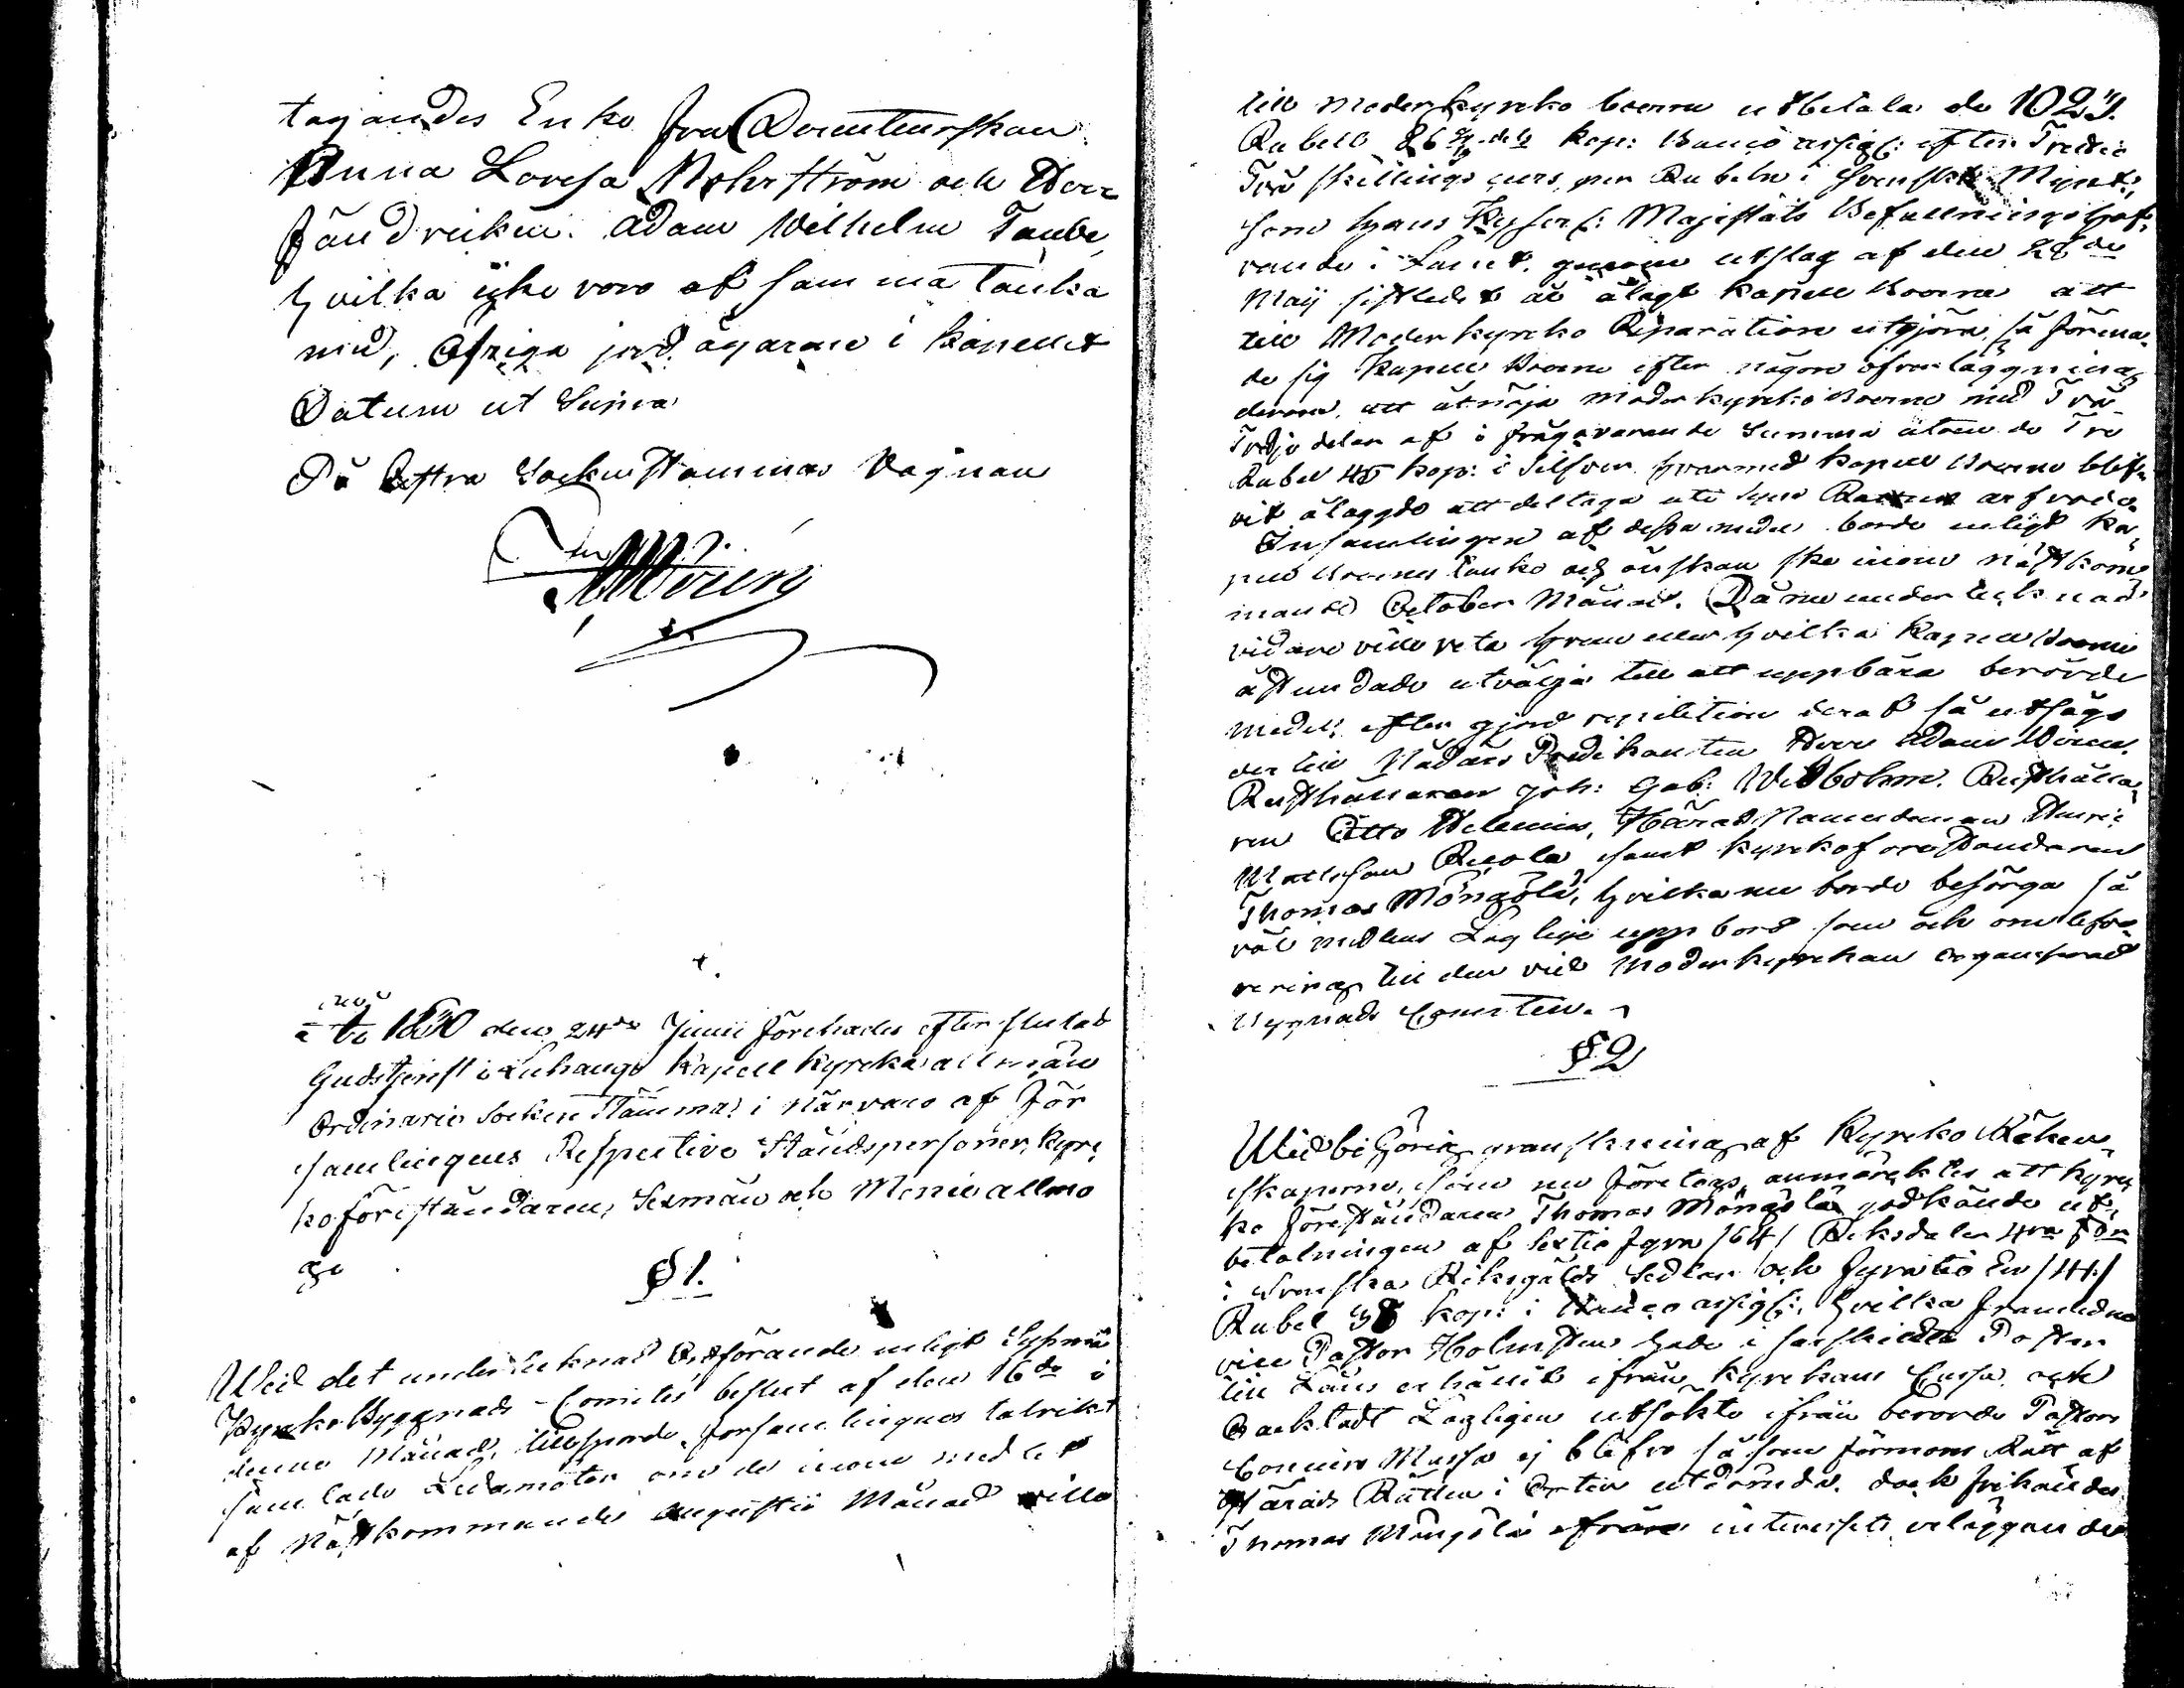 tagandes Enke fru Direuteurskan
Anna Lovisa Mohrström och Herr
Fändricken Adam Wilhelm Taube,
hvilka icke voro af samma tanka
med, Öfriga jord ägarne i kapellet
Datum ut Supra
På Sockne Stammas Vägnar
Wirén
1830 den 24de Junii förehades efter slutad
Gudstjenst i Luhango Kapell kyrka allmän
Ordinarie Socken Stämma i närvaro af För
samlingens Respective Ståndspersoner, Kyr-
koföreståndaren, Sexmän och Menig allmo
ge
§ 1.
Wid det undertecknad Ordförande enligt Sysmä
Kyrko Byggnads-Comités beslut af den 16de i
denna Månad, tillsporde församlingens talrikt
samlade Ledamöter om de inom medlet
af nästkommande Augustii Månad ville
till moderkyrko boerne utbetala de 1023.
Rubell 86 kop: Banco assig: efter Tredio
Två skillings curs per Rubeln i Svenskt Mynt,
som hans Kejserl: Majestäts Befallningshaf-
vande i Länet genom utslag af den 28de
Maij sistledit ålagt Kapell Boerne att
till Moderkyrko Reparation utgjöra, så förena-
de sig Kapell Boerne efter någon öfverläggning
derom, att åtnöja moderkyrko Boerne med Två
Tredje delar af i frågavarande Summa utom de Tre
Rubel 45 kop: i Silfver hvarmed kapell Boerne blif-
vit ålaggde att deltaga uti
Insamlingen af dessa medel borde enligt Ka-
pell Boernes tanke och önskan ske inom nästkom-
mande October Månad. Då nu undertecknad
vidare ville veta hvem eller hvilka Kapell Boerne
åstundade utvälja till att uppbära berörde
medel; efter gjord repetition deraf så utsågs
der till Nådårs Predikanten Herr Adam Wirén,
Rusthållaren Joh: Gab: Widbohm, Rusthålla-
ren Otto Helenius, Härads Nämndeman Henric
Mattsson Ruola, samt kyrkoforeståndaren
Thomas Möngölä, hvilka nu borde besörga så
väl medlens Laglige uppbörd som och om lefve
rering till den vid Moderkyrkan organiserad
Byggnads Comitén.
§ 2
Wid behörig granskning af Kyrko Räken
skaperne, som nu företogs, anmärktes att kyr-
ko föreståndaren Thomas Möngölä godkände ut-
betalningen af sextio fyra /64/ Riksdaler
i Svenska Riksgälds Sedlar och fyratio En /41/
Rubel kop: i Banco assig:, hvilka framledne
vice Pastor Holmsten hade i särskildte Poster
till Låns erhållit ifrån Kyrkans Cassa, och
oacktadt Lagligen utsökte ifrån berorde Pastors
Concurs Massa ej blefvo såsom förmons Rätt af
Härads Rätten i Orten utdömda, dock frikändes
Thomas Möngölä ifrån interessets erläggande